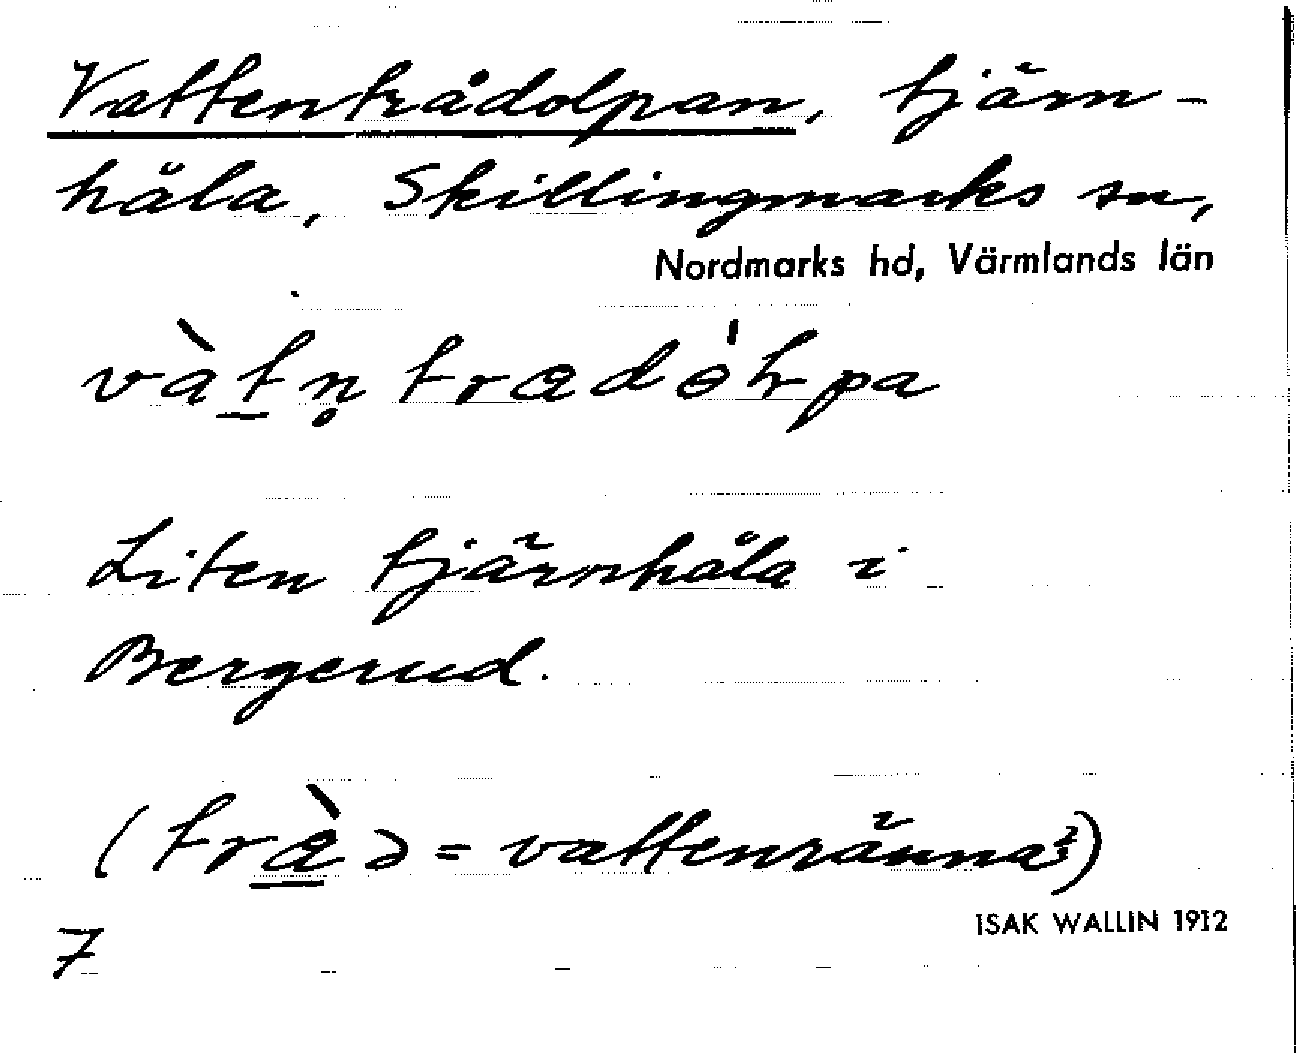 Vattentrådolpan, tjärn-
håla, Skillingmarks sn,
Nordmarks hd, Värmlands län
vàt̲n̥ tradɵ́lpa
Liten tjärnhåla i
Bergerud.
(trà̲ə = vattenränna)
ISAK WALLIN 1912
7